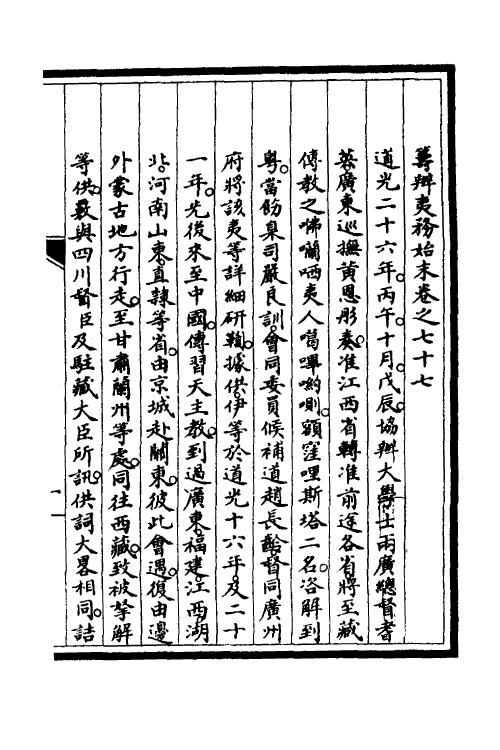 籌辦夷務始末卷之七十七
道光二十六年。丙午。十月。戊辰。協辦大學士兩廣總督耆
英廣東巡撫黃恩彤奏。准江西省轉准前途各省。將至藏
傳教之咈囒哂夷人噶嗶喲唎。額窪哩斯塔二名。咨解到
粵。當飭臬司嚴良訓。會同委員候補道趙長齡。督同廣州
府將該夷等詳細研鞫。據供。伊等於道光十六年。及二十
一年。先後來至中國。傳習天主教。到過廣東。福建。江西。湖
北。河南。山東。直隸等省。由京城赴關東。彼此會遇。復由邊
外蒙古地方行走。至甘肅蘭州等處。同往西藏。致被拏解
等供。覈與四川督臣及駐藏大臣所訊。供詞大畧相同。詰
一